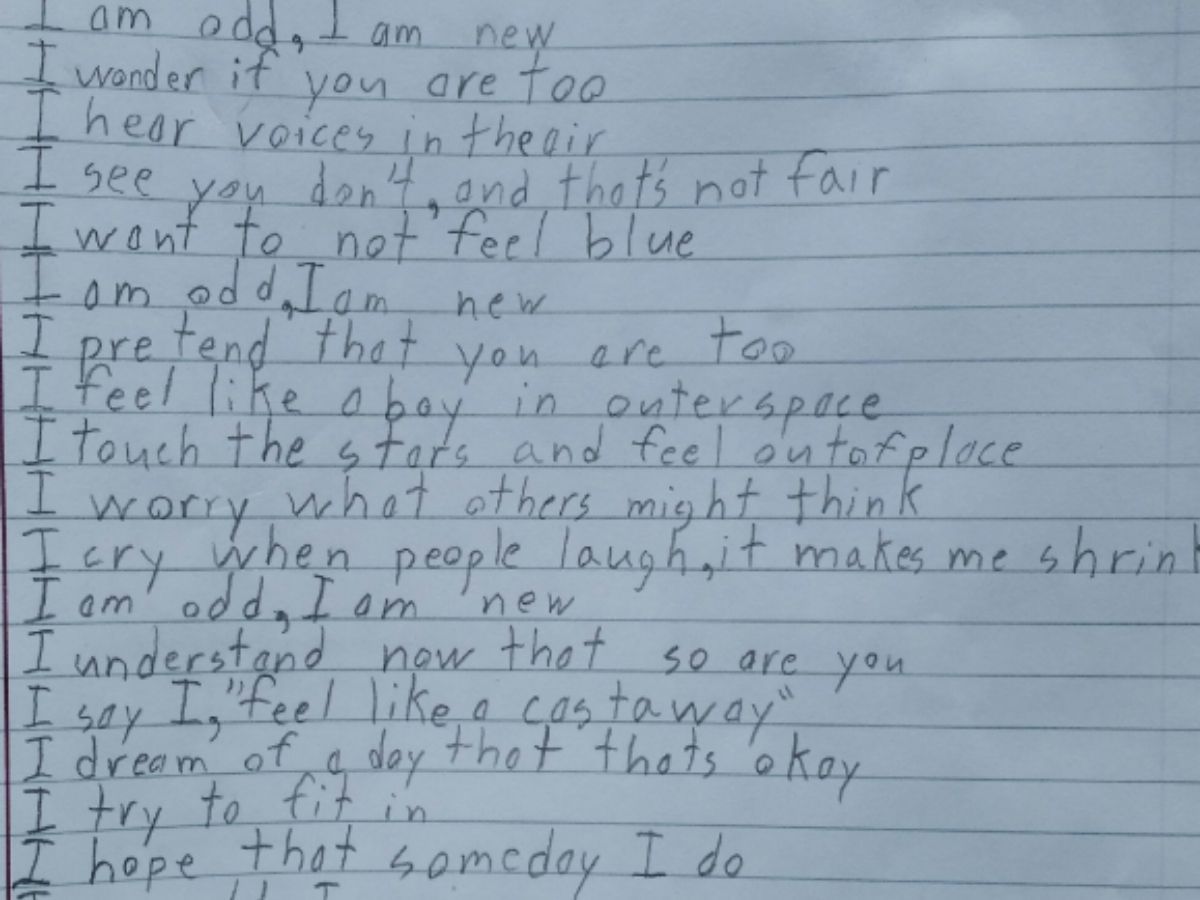 I am odd, I am new
I wonder if you are too
I hear voices in the air
I see you don't, and that's not fair
I want to not feel blue
I am odd, I am new
I pretend that you are too
I feel like a boy in outerspace
I touch the stars and feel out of place
I worry what others might think
I cry when people laugh, it makes me shrink
I am odd, I am new
I understand now that so are you
I say I, "feel like a castaway"
I dream of a day that thats okay
I try to fit in
I hope that someday I do